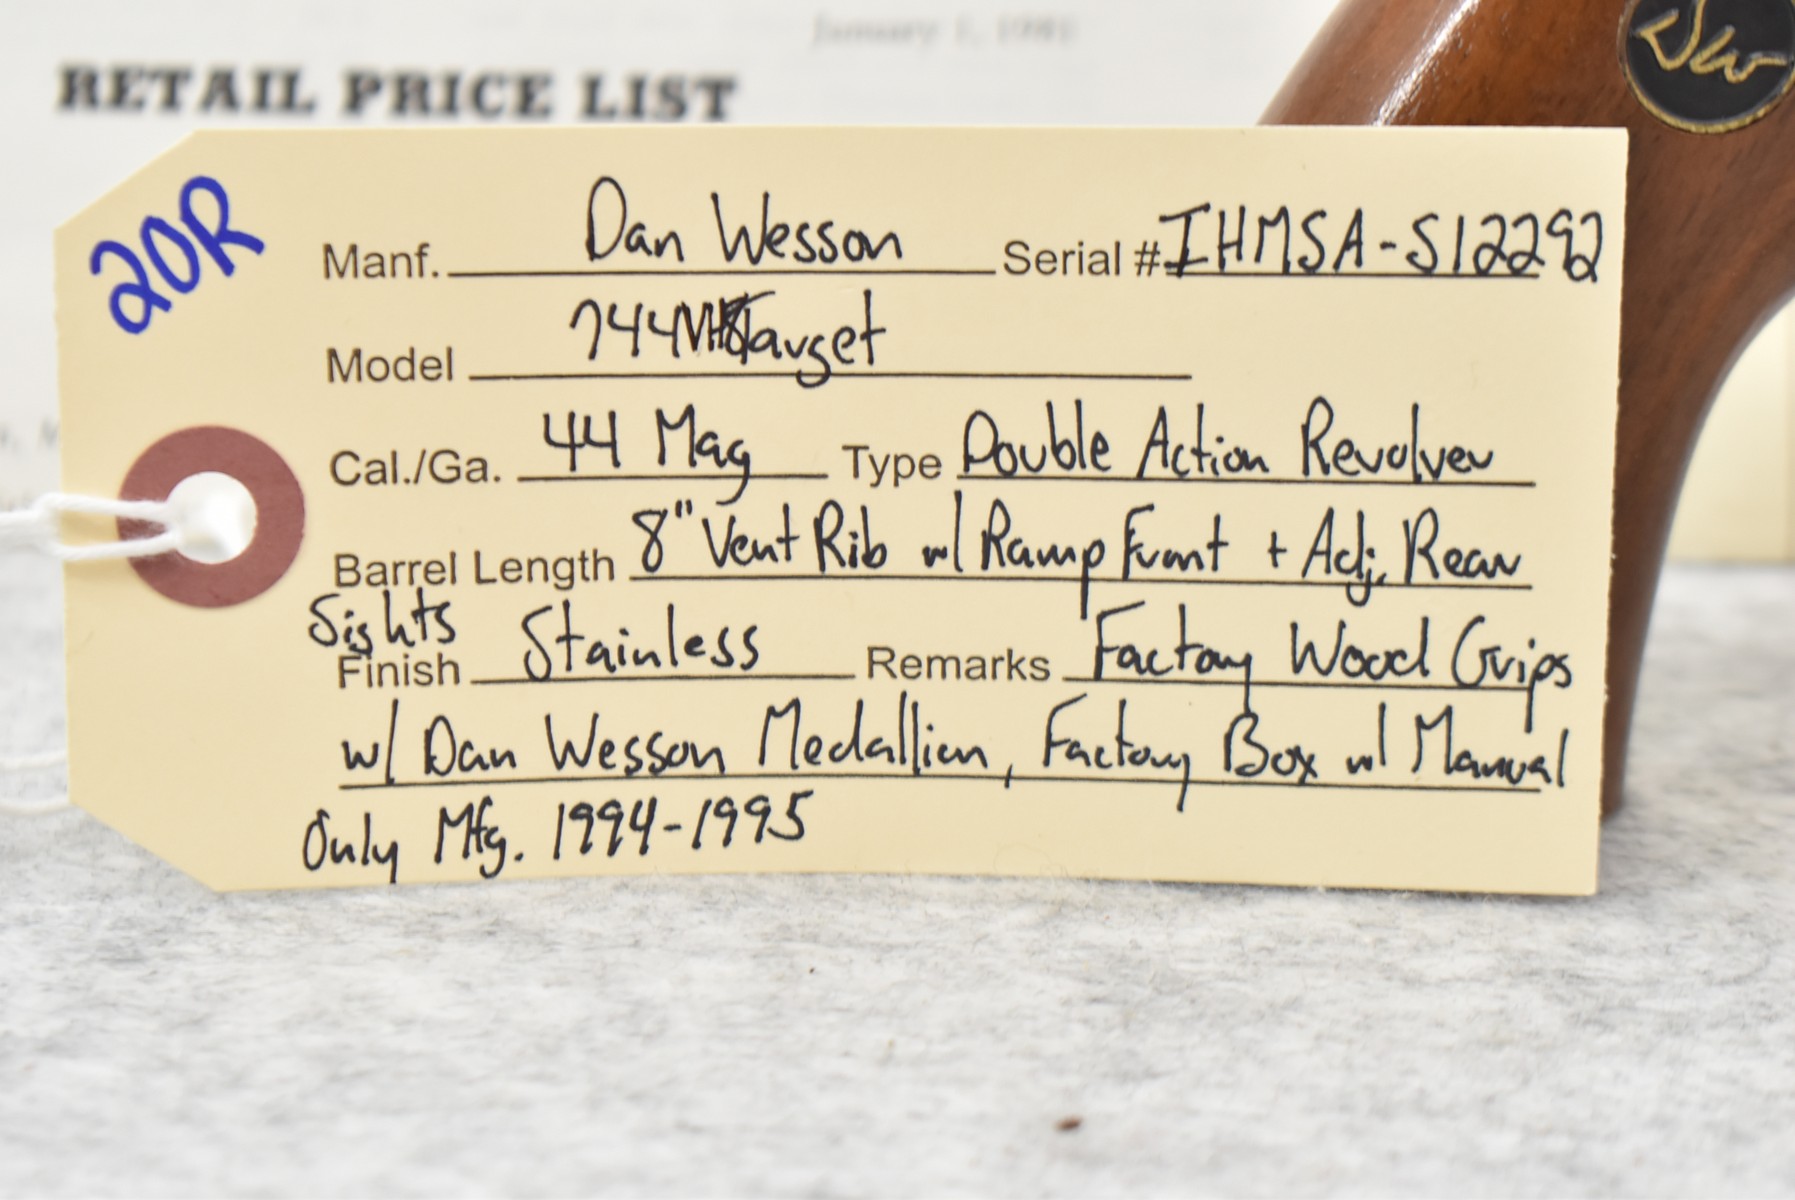 January 1, 1981
RETAIL PRICE LIST
DW
20R
Manf. Dan Wesson Serial # IHMSA-S12292
Model Target
Cal./Ga. 44 Mag Type Double Action Revolver
Barrel Length 8" Vent Rib w/ Ramp Front + Adj. Rear
Sights
Finish Stainless Remarks Factory Wood Grips
w/ Dan Wesson Medallion, Factory Box w/ Manual
Only Mfg. 1994-1995